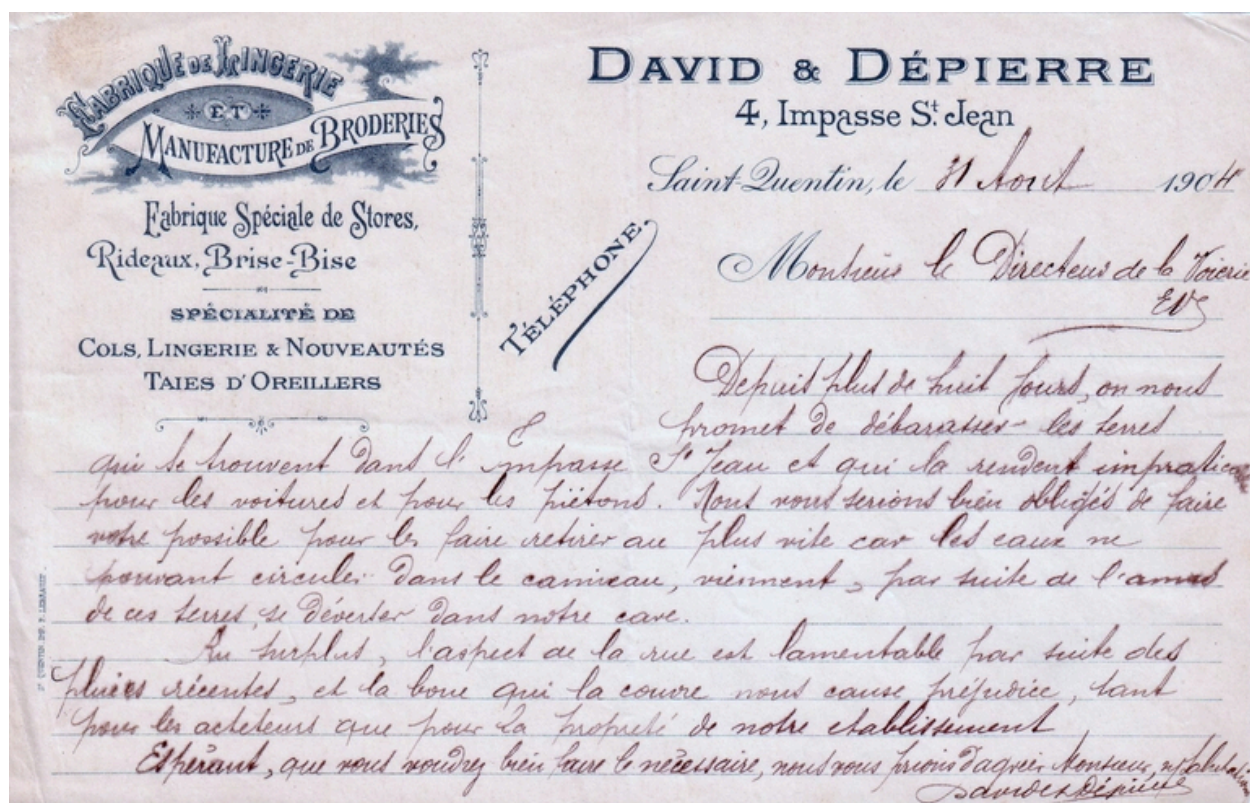 FABRIQUE DE LINGERIE
ET
MANUFACTURE DE BRODERIES
Fabrique Spéciale de Stores,
Rideaux, Brise-Bise
SPÉCIALITÉ DE
COLS, LINGERIE & NOUVEAUTÉS
TAIES D'OREILLERS
TÉLÉPHONE.
DAVID & DÉPIERRE
4, Impasse St. Jean
Saint-Quentin, le 31 Aout 1904
Monsieur le Directeur de la Voierie
EV
Depuis plus de huit jours, on nous
promet de débarasser les terres
qui se trouvent dans l'Impasse St Jean et qui la rendent impraticable
pour les voitures et pour les piétons. Nous vous serions bien obligés de faire
votre possible pour les faire retirer au plus vite car les eaux ne
pouvant circuler dans le caniveau, viennent, par suite de l'amas
de ces terres, se déverser dans notre cave.
Au surplus, l'aspect de la rue est lamentable par suite des
pluies récentes, et la boue qui la couvre nous cause préjudice, tant
pour les acheteurs que pour la propreté de notre etablissement
Espérant, que vous voudrez bien faire le nécessaire, nous vous prions d'agréer Monsieur, nos salutations
David et Dépierre